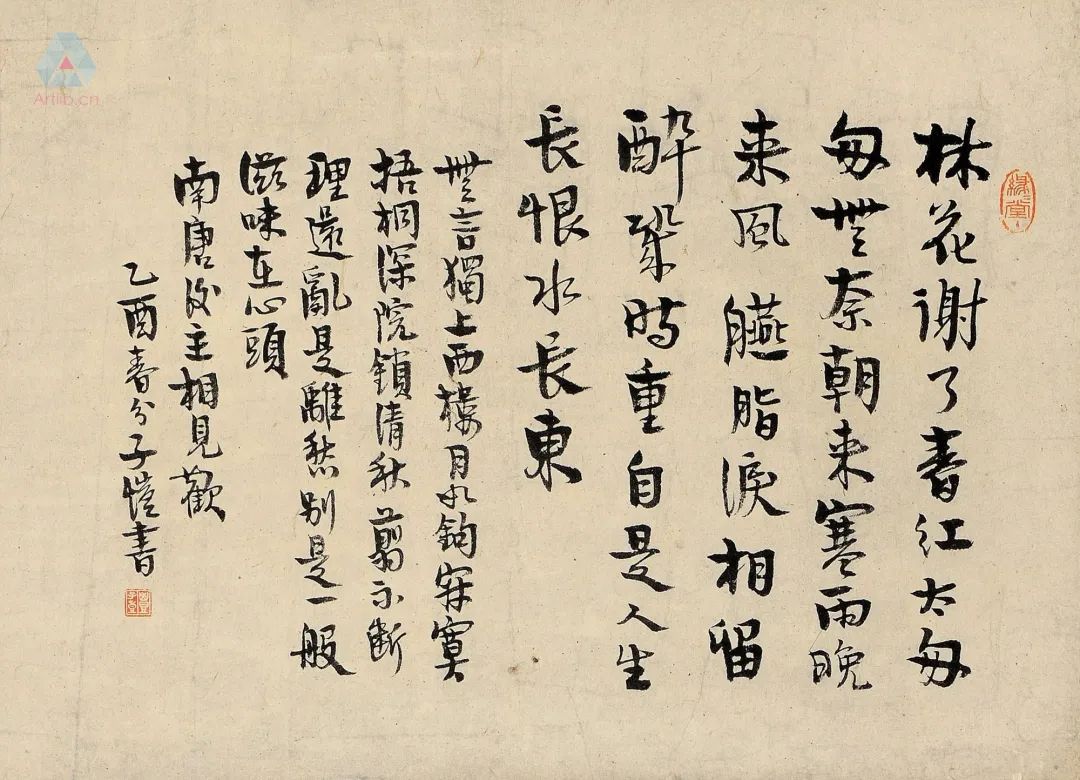 緣緣堂
林花謝了春紅太匆
匆無奈朝来寒雨晚
来風臙脂淚相留
醉幾時重自是人生
長恨水長東
無言獨上西樓月如鉤寂寞
梧桐深院鎖清秋剪不斷
理還亂是離愁别是一般
滋味在心頭
南唐後主相見歡
乙酉春分子愷書
Artlib.cn